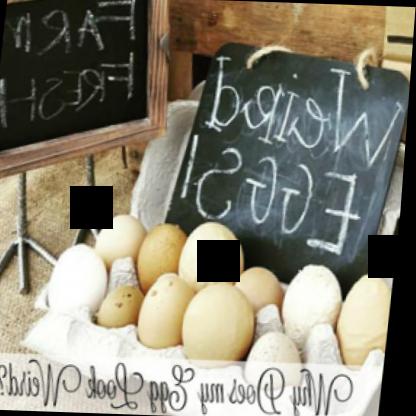 FARM
FRESH
Weird
EGGS!
Why Does my Egg Look Weird?